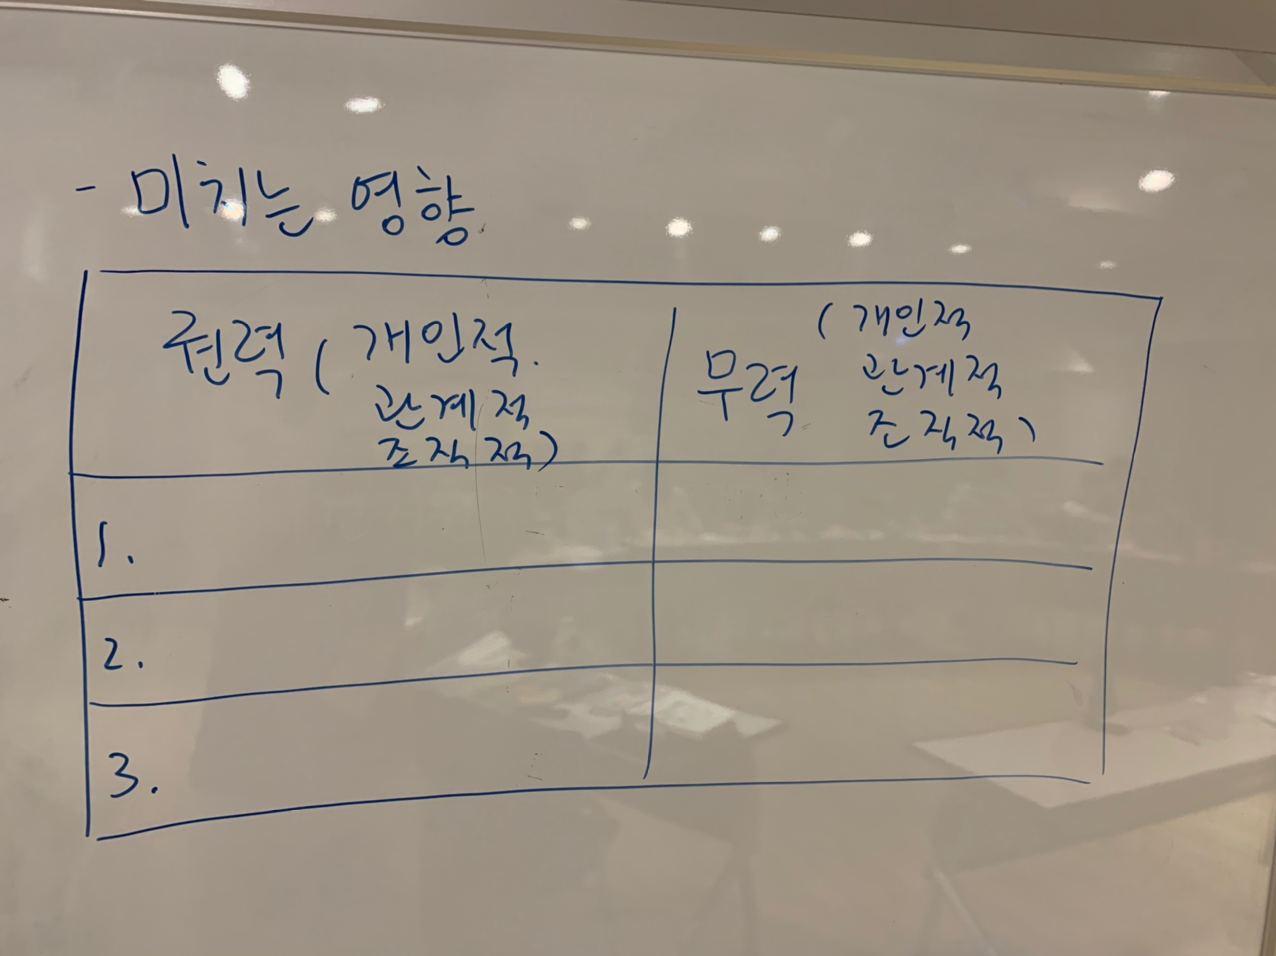 - 미치는 영향
권력 ( 개인적.
관계적
조직적)
무력 ( 개인적
관계적
조직적)
1.
2.
3.